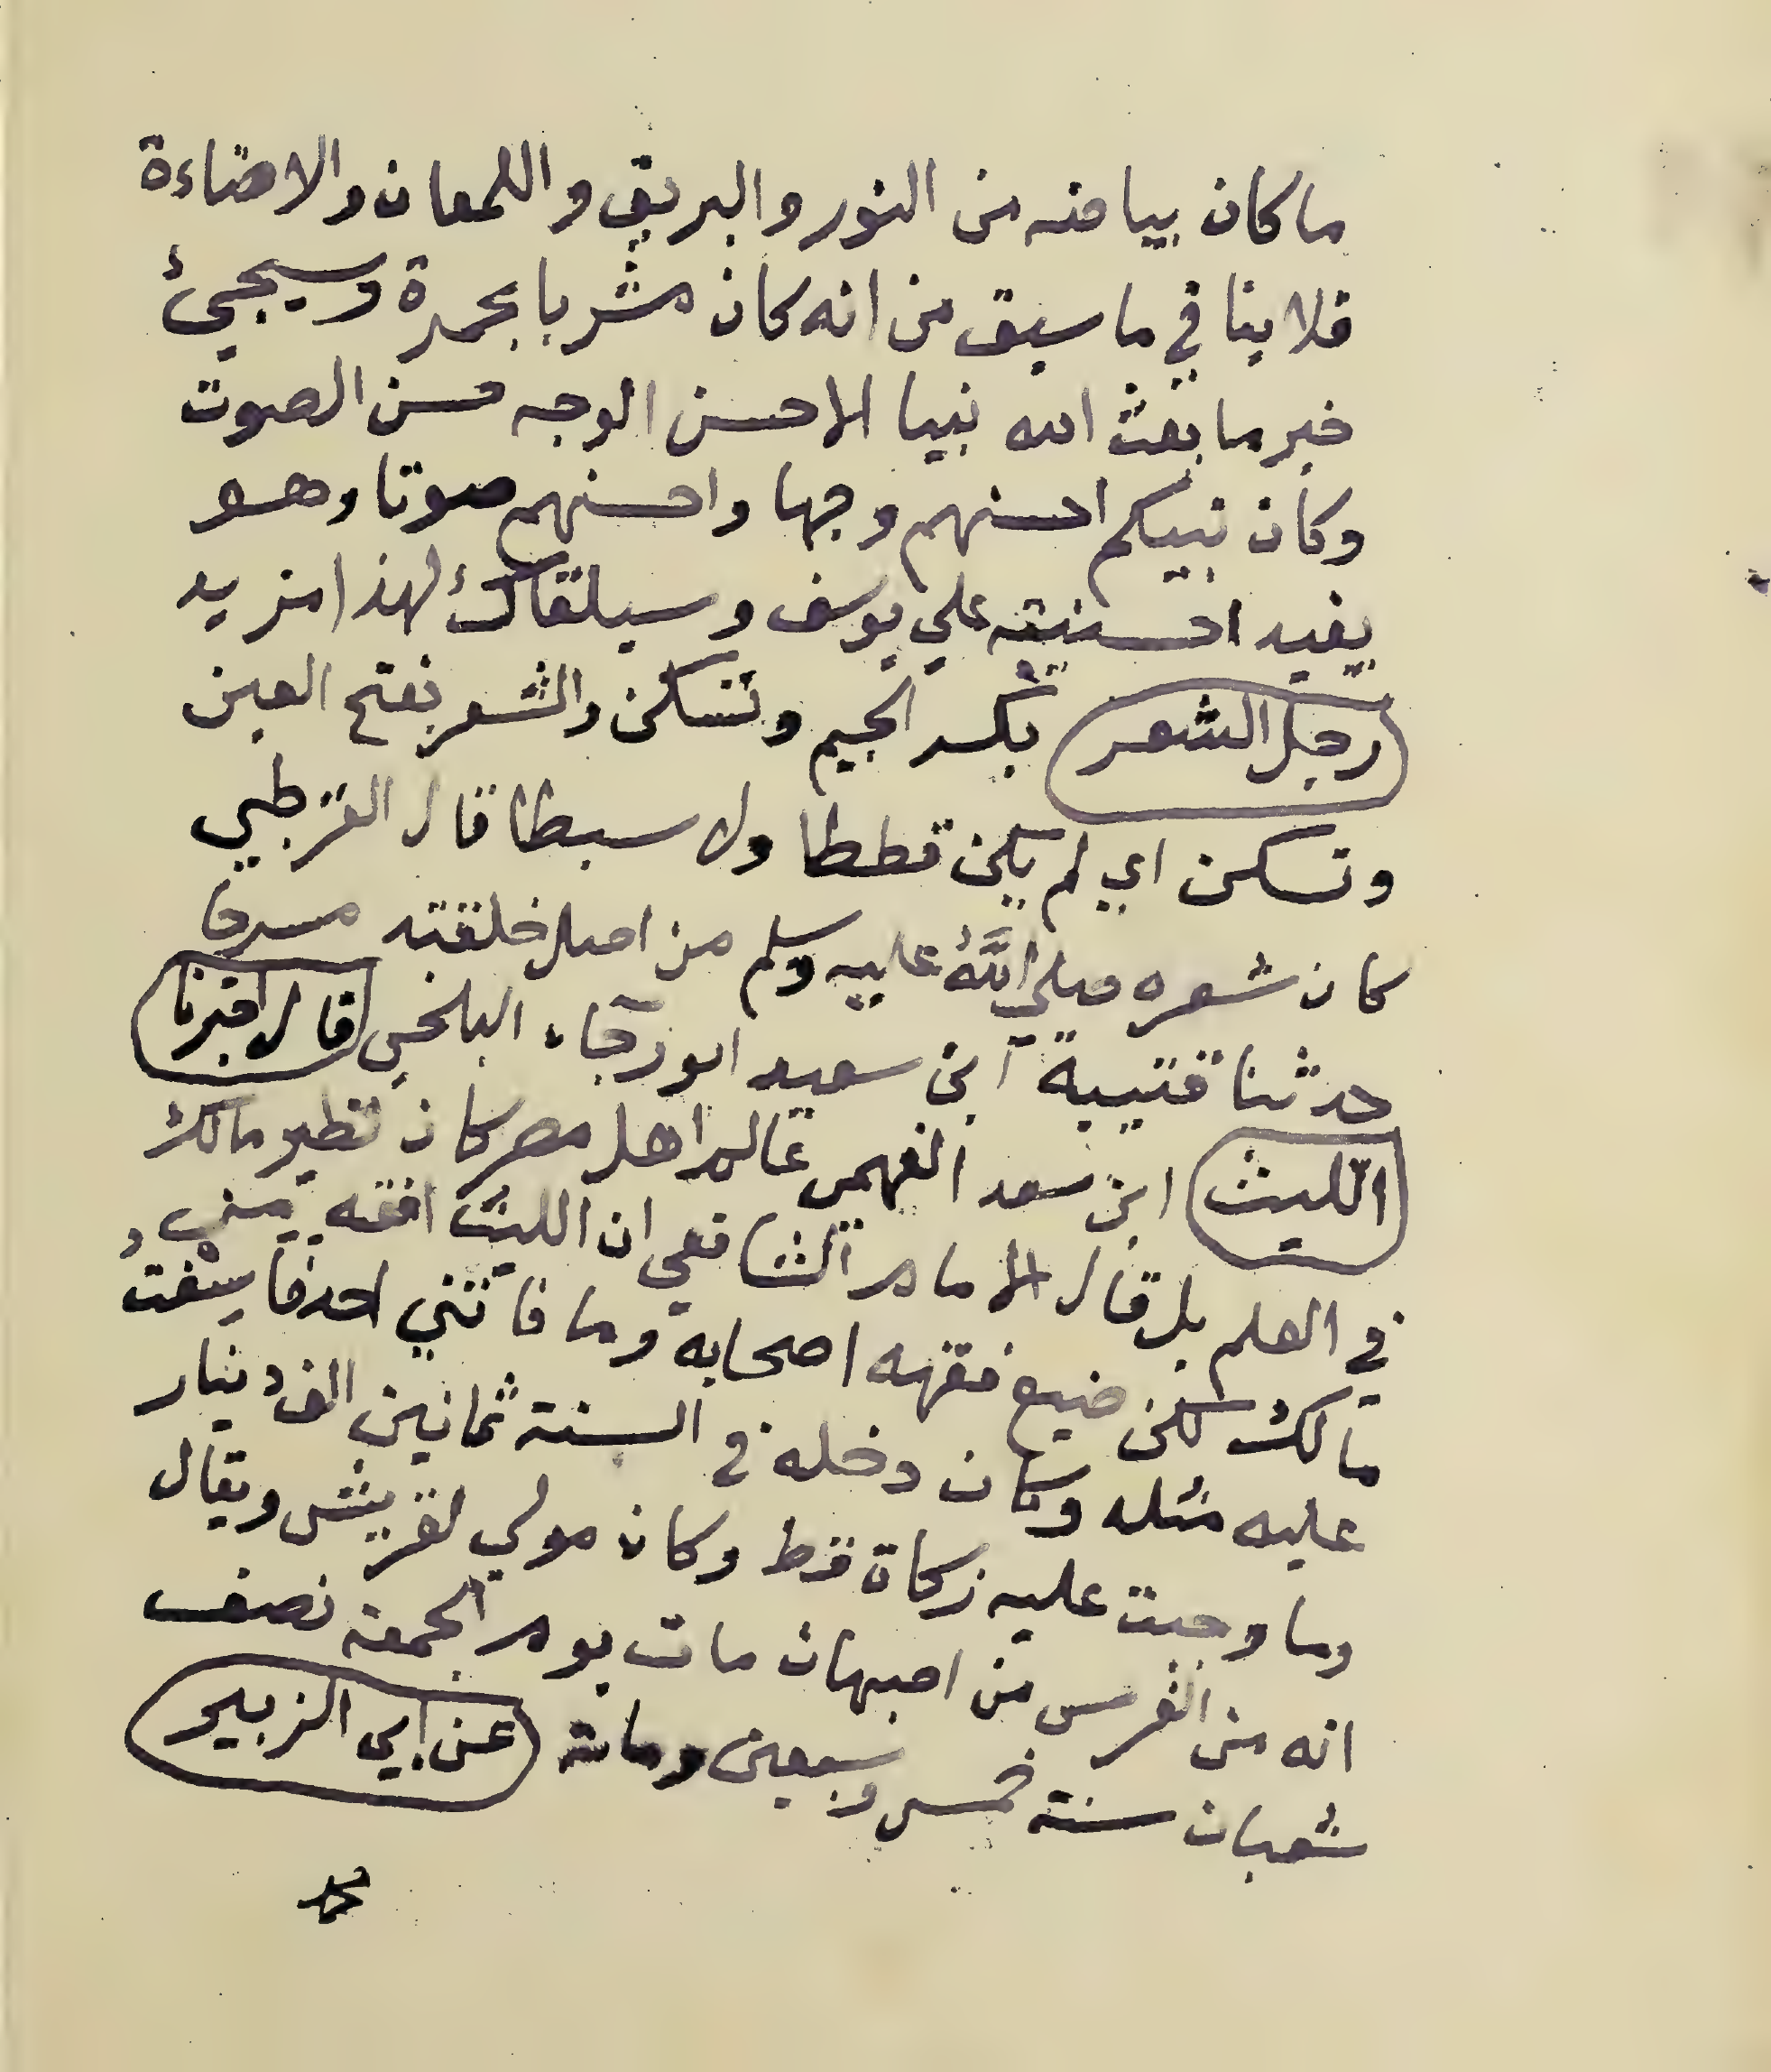 ما كان بياضه من النور والبريق واللمعان والاضاءة
فلا ينافي ما سبق من انه كان مشربا بحمرة وسيجئ
خبر ما بعث الله نبيا الا حسن الوجه حسن الصوت
وكان نبيكم احسنهم وجها واحسنهم صوتا وهو
يفيد احسنيته علي يوسف وسيلقاك لهذا مزيد
رجل الشعر بكسر الجيم وتسكن والشعر بفتح العين
وتسكن اي لم يكن قططا ولا سبطا قال القرطبي
كان شعره صلي اللَّهُ عليه وسلم من اصل خلقته مسرحا
حدثنا قتيبة ابن سعيد ابو رجاء البلخي قال اخبرنا
الليث ابن سعد الفهمي عالم اهل مصر كان نظير مالك
في العلم بل قال الامام الشافعي ان الليث افقه من
مالك لكن ضيع فقهه اصحابه وما فاتني احد فاسفتُ
عليه مثله وكان دخله في السنة ثمانين الف دينار
وما وجبت عليه زكاة قط وكان مولي لقريش ويقال
انه من الفرس من اصبهان مات يوم الجمعة نصف
شعبان سنة خمس وسبعين ومائة عن ابي الزبير